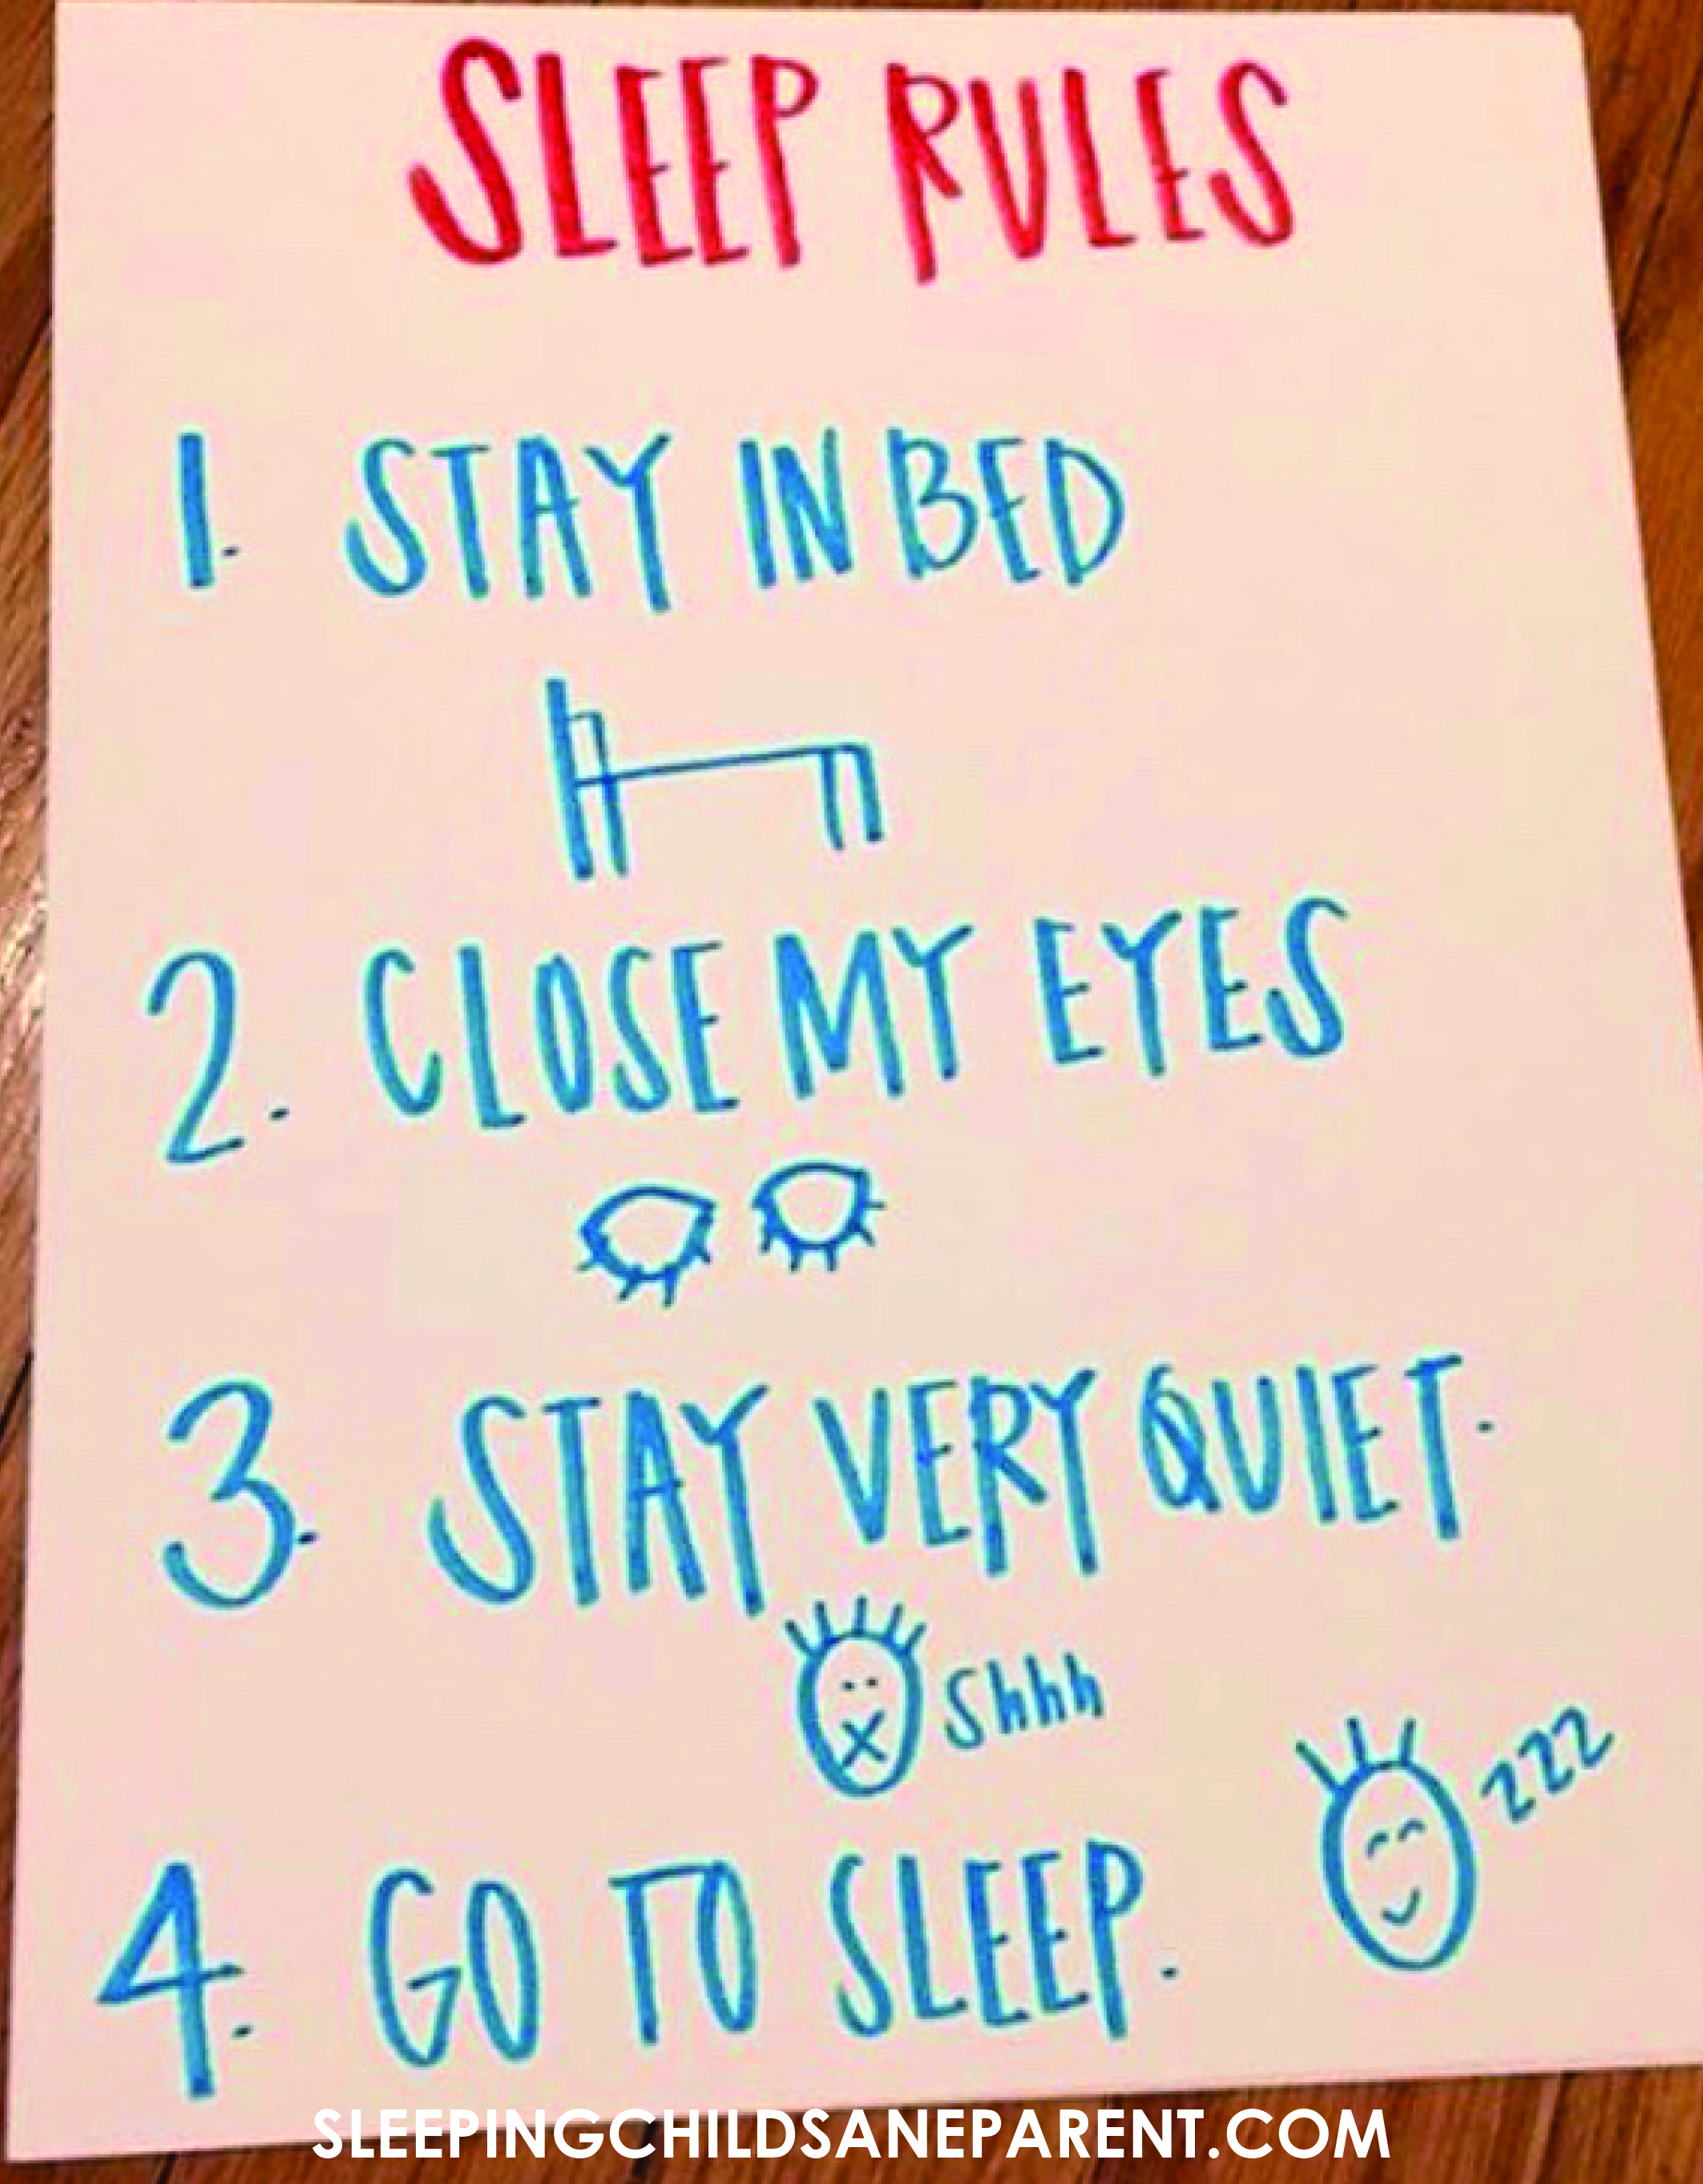 SLEEP RULES
1. STAY IN BED
2. CLOSE MY EYES
3. STAY VERY QUIET.
shhh
zzz
4. GO TO SLEEP.
SLEEPINGCHILDSANEPARENT.COM